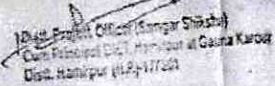 Distt. Project Officer (Samgar Shiksha)
Cum Principal DIET, Hamirpur at Gauna Karour
Distt. Hamirpur (H.P.)-177001